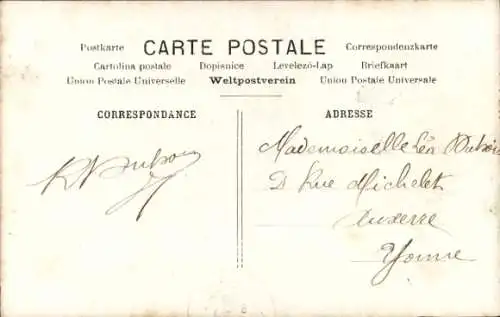 Postkarte CARTE POSTALE Correspondenzkarte
Cartolina postale Dopisnice Levelező-Lap Briefkaart
Union Postale Universelle Weltpostverein Union Postale Universale
CORRESPONDANCE ADRESSE
Mademoiselle Léa Dubois
Rue Michelet
Auxerre
Yonne